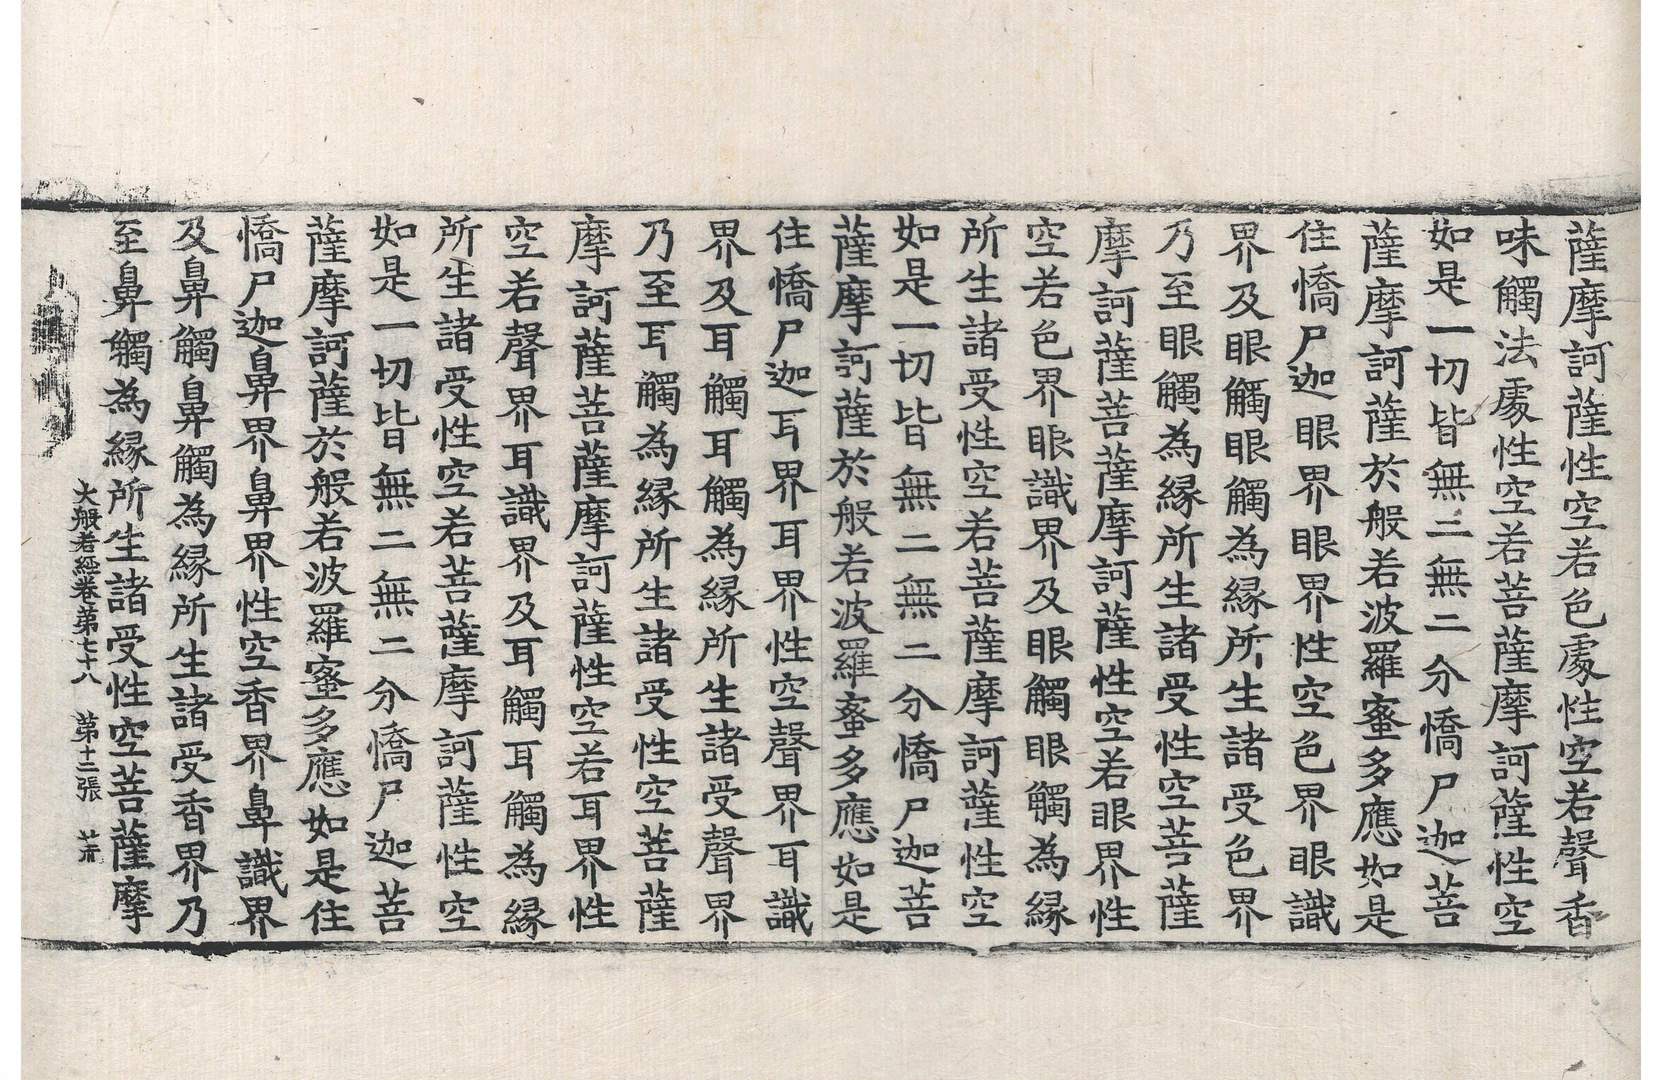 薩摩訶薩性空若色處性空若聲香
味觸法處性空若菩薩摩訶薩性空
如是一切皆無二無二分憍尸迦菩
薩摩訶薩於般若波羅蜜多應如是
住憍尸迦眼界眼界性空色界眼識
界及眼觸眼觸為緣所生諸受色界
乃至眼觸為緣所生諸受性空菩薩
摩訶薩菩薩摩訶薩性空若眼界性
空若色界眼識界及眼觸眼觸為緣
所生諸受性空若菩薩摩訶薩性空
如是一切皆無二無二分憍尸迦菩
薩摩訶薩於般若波羅蜜多應如是
住憍尸迦耳界耳界性空聲界耳識
界及耳觸耳觸為緣所生諸受聲界
乃至耳觸為緣所生諸受性空菩薩
摩訶薩菩薩摩訶薩性空若耳界性
空若聲界耳識界及耳觸耳觸為緣
所生諸受性空若菩薩摩訶薩性空
如是一切皆無二無二分憍尸迦菩
薩摩訶薩於般若波羅蜜多應如是住
憍尸迦鼻界鼻界性空香界鼻識界
及鼻觸鼻觸為緣所生諸受香界乃
至鼻觸為緣所生諸受性空菩薩摩
大般若經卷第七十八 第十二張